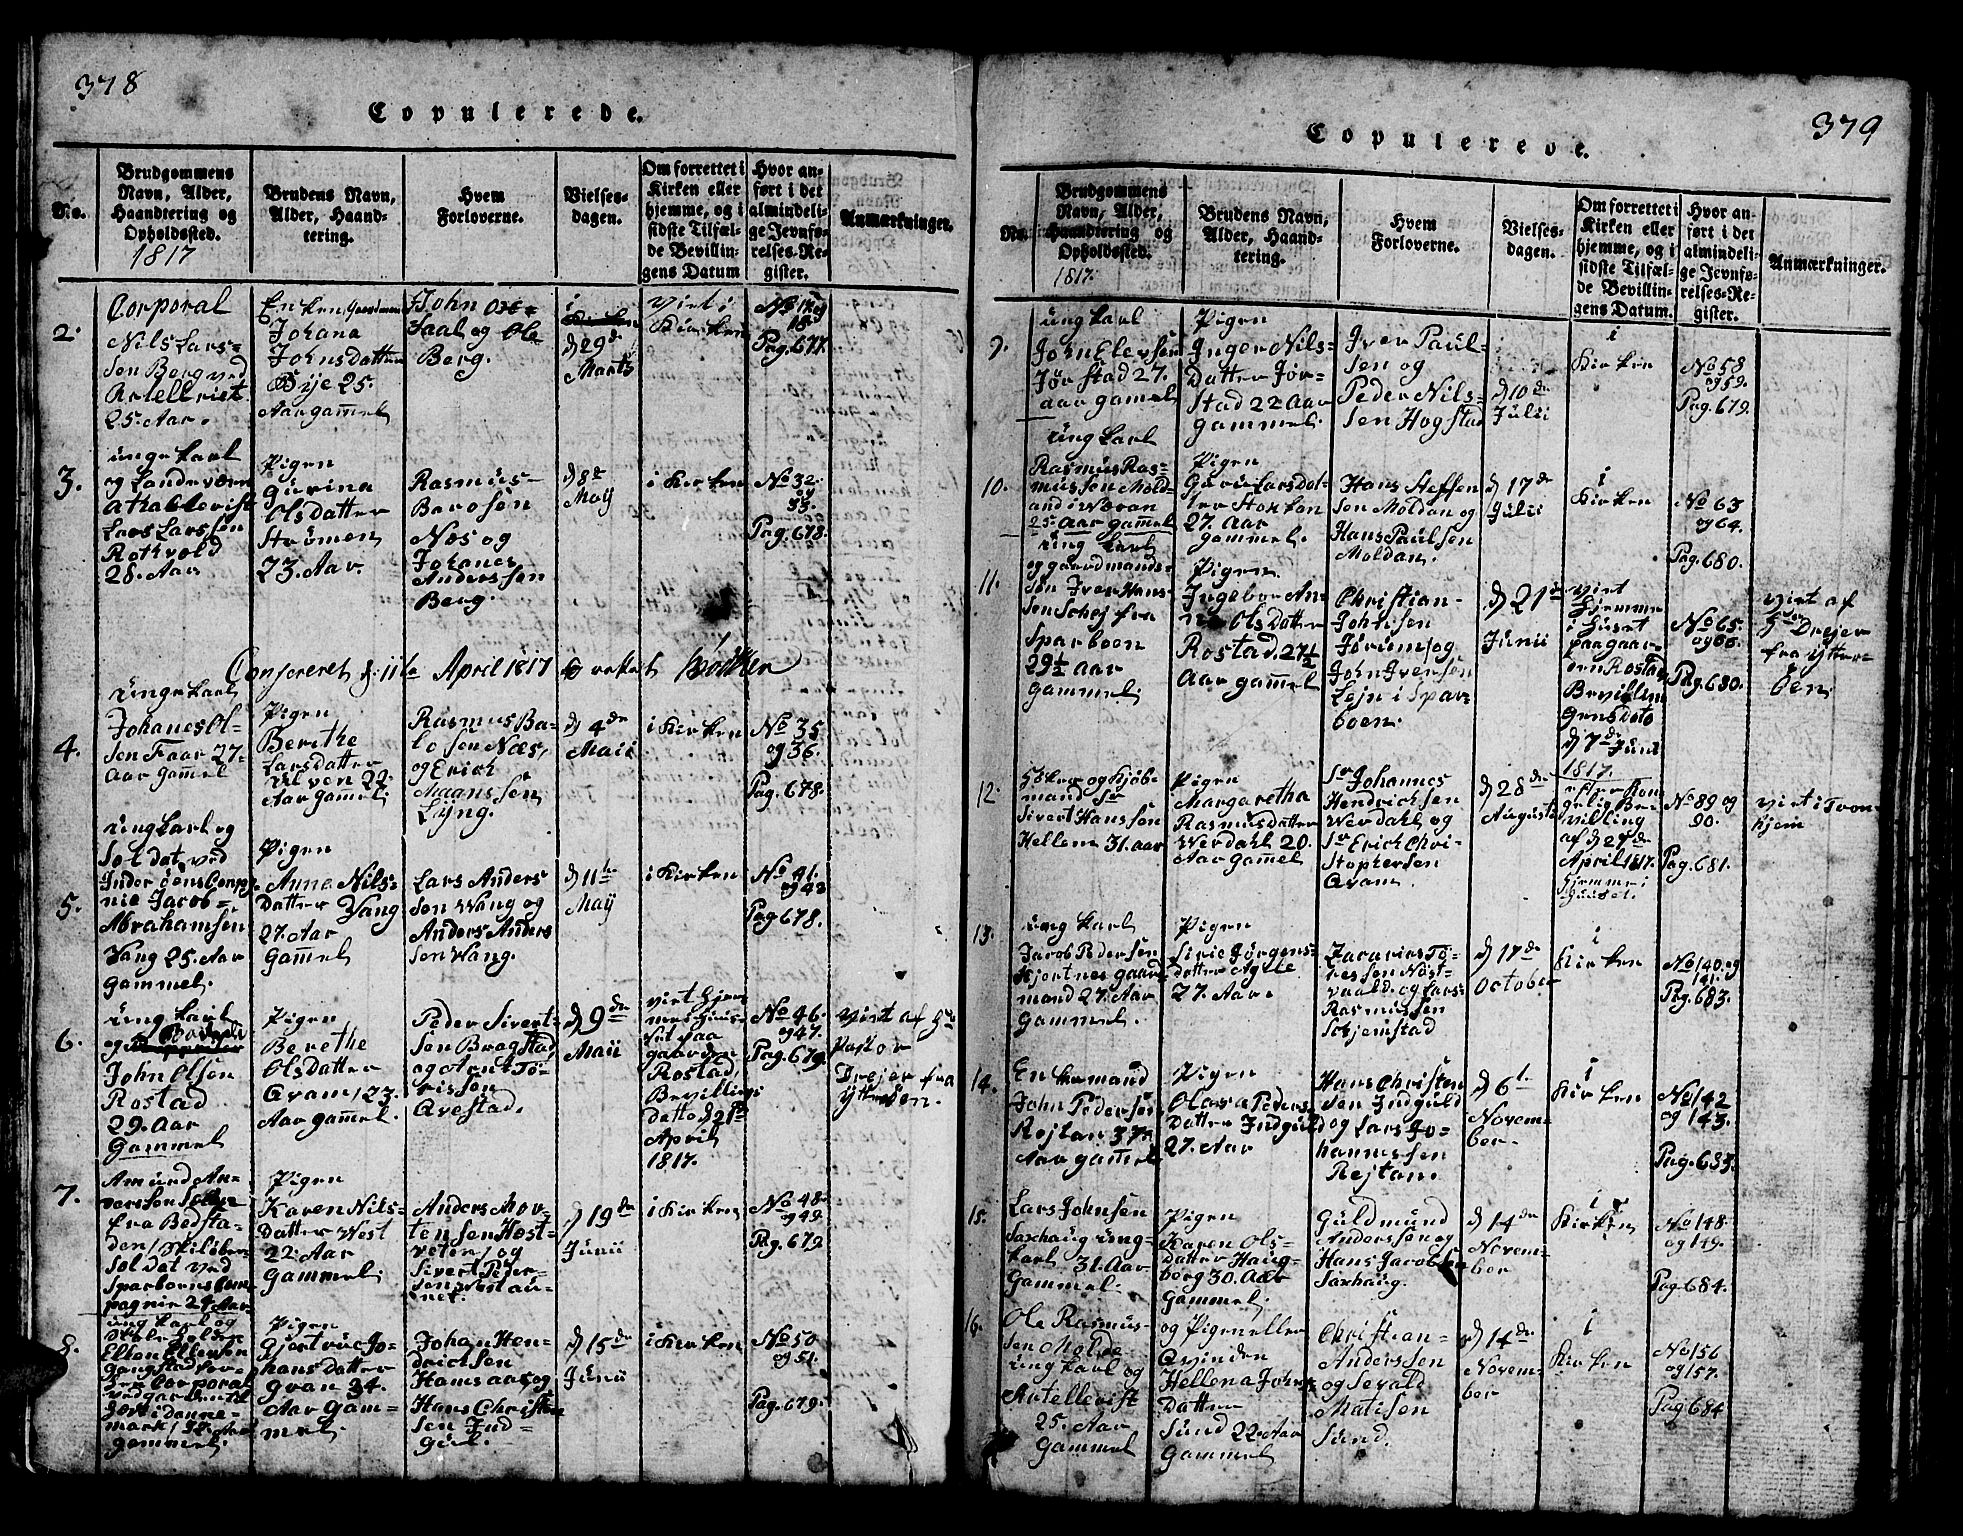 378
Copulerede.
No.
Brudgommens
Navn, Alder,
Haandtering og
Opholdssted.
1817
Brudens Navn,
Alder, Haand-
tering.
Hvem
Forloverne.
Vielses-
dagen.
Om forrettet i
Kirken eller
hjemme, og i
sidste Tilfæl-
de Bevillin-
gens Datum
Hvor an-
ført i det
almindeli-
ge Jevnfø-
relses-Re-
gister.
Anmærkninger.
2.
Corporal
Nils Lars-
sen Berg ved
25. Aar.
Enken
Johana
Johnsdatter
Bye 25.
Aar gam̄el
John
Saal og Ole
Berg.
i
d 29de
Marts
viet i
Kirken
18.
Pag. 677.
3.
unge karl
og Landeværn
Lars Larssen
Rothvold
28. Aar
Pigen
Gurina
Olsdatter
Strömen
23. Aar.
Rasmus
Barosen
Næs og
Johanes
Anderssen
Berg.
d 8de
Maij
i Kirken
No 32.
og
33.
Pag. 678.
April 1817
4.
unge karl
Johanes Ol-
sen Faar 27
Aar gam̄el
Pigen
Berithe
Larsdatter
Ulven 22.
Aar gam̄el
Rasmus Ba-
ro sen Næs,
og Erich
Maanssen
Lÿng.
d 4de
Maii
i Kirken
No 35.
og 36.
Pag. 678.
5.
ung karl og
Soldat ved
nie Jacob
Abrahamsen
Vang 25. Aar
Gammel.
Pigen
Anna Nils-
Datter Vang
27. Aar
Gam̄el
Lars Anders
sen Wang og
Anders Anders
sen Wang.
d 11te
Maij
i Kirken
No 41.
og 42
Pag 678.
6.
ung karl
og
John Olsen
Rostad
29. Aar
Gammel
Pigen
Berethe
Olsdatter
Aram, 23.
Aar gam̄el
Peder Sivert-
sen Bragstad
og Arnt To-
rissen
Arestad.
d 9de
Maii
viet hjem
me i Huu-
set paa
gaarden
Rostad
Bevillings
Datto d 21de
April
1817.
No 46.
og 47.
Pag. 679
viet af Hr
Pastor
Drejer fra
Ytterøen.
7.
Amund An-
derssen
fra Bedsta-
den, Skiløber
Soldat ved
Sparboens Com
pagnie 24 Aar
Pigen
Karen Nils-
Datter West
22. Aar
Gammel
Anders Mor-
tensen Host-
veten, og
Sivert Peder-
sen Westau-
net.
d 19de
Junii
i Kirken
No 48.
og 49
Pag. 679
8.
ung karl og
Ellen Ellensen
Gangstad
Corporal
mark, 32. Aar
gammel.
Pigen
Gjertrue Jo-
hansdatter
Gran 34.
Aar Gam-
mel.
Johan Hen-
drichsen
Hamsaas og
Hans Christen
sen Ind-
gul.
d 15de
Junii
i Kirken
No 50
og 51.
Pag. 679.
379
Copulerede.
No.
Brudgommens
Navn, Alder,
Haandtering og
Opholdssted.
1817.
Brudens Navn,
Alder, Haand-
tering.
Hvem
Forloverne.
Vielses-
dagen.
Om forrettet i
Kirken eller
hjemme, og i
sidste Tilfæl-
de Bevillin-
gens Datum.
Hvor an-
ført i det
almindeli-
ge Jevnfø-
relses-Re-
gister.
Anmærkninger.
9.
ung karl
John Elevsen
Jørstad 27.
aar gamel
Pigen
Inger Nils-
Datter Jør-
stad 22 Aar
Gammel.
Iver Paul-
sen og
Peder Nils-
sen Hogstad
d 10de
Julii
i
Kirken
No 58
og 59.
Pag. 679.
10.
ung karl
Rasmus Ras-
mussen Mold-
25. Aar gam̄el
Pigen
Guru Larsdat-
ter
27. Aar
gammel.
Hans Steffen
sen Moldan og
Hans Paulsen
Moldan.
d 17de
Julii
i
Kirken
No 63
og 64.
Pag. 680.
11.
ung karl
og gaardmands-
søn Iver Hans-
sen Schej fra
Sparboen
29½ aar
Gammel.
Pigen
Ingebor An-
na Olsdatter
Rostad, 27½
Aar gam̄el
Christian
Johnsen
Jørum, og
John Iversen
Lejn i Spar-
boen.
d 21de
Junii
viet
Hjemme
i Huset
paa gaar-
den Rostad
Bevillin
gens Dato
d 7de Junii
1817.
No 65.
og 66.
Pag. 680.
viet af
Hr Drejer
fra Ytter-
øen
12.
mand Sr
Sivert Hanssen
Hellem 31. aar
Pigen
Margaretha
Rasmusdatter
Werdahl 20.
Aar Gam̄el
Sr Johannes
Hendrichsen
Werdahl, og
Sr Erich Chri-
stophersen
Aram.
d 28de
Augusti
efter Kon-
gelig Be-
villing
af d 29de
April 1817.
Hjemme i
Huuset.
No 89 og
90.
Pag. 681.
viet i Tron-
hjem
13.
ung karl
Jacob Pedersen
Hjertnes gaard
mand 27. Aar
Gammel.
Pigen
Siric Jørgens-
datter Agtle
27. Aar.
Zacarias To-
ressen Nøst-
vaald, og Lars
Rasmussen
Schjemstad
d 17de
October
i
Kirken
No 140. og
141.
Pag. 683.
14.
Enkemand
John Pedersen
Rejtan 37½
Aar gam̄el
Pigen
Olava Peders
Datter Indguld
27. Aar
Hans Christen
sen Indguld
og Lars Jo-
hannessen
Rejtan.
d 6t.
Novem-
ber.
i
Kirken
No 142
og 143.
Pag. 683.
15.
Lars Johnsen
Saxhaug ung-
karl 31. Aar
Gammel.
Pigen
Karen Ols-
Datter Haug-
berg 30. Aar
Gammel
Guldmund
Anderssen og
Hans Jacobsen
Saxhaug.
d 14de
Novem-
ber
i
Kirken
No 148.
og 149.
Pag. 684.
16.
Ole Rasmus-
sen Molde
ung karl og
Artellerist
25. Aar
Gammel
og Pigen eller
Qvinden
Hellena Johns
Datter
Sund 22. Aar
Gammel
Christian
Anderssen
og Sevald
Matisen
Sund.
d 14de
Novem-
ber
i
Kirken
No 156
og 157.
Pag 684